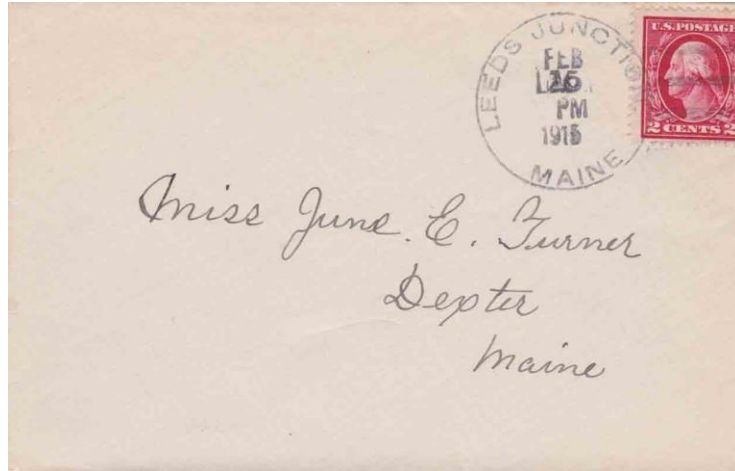 LEEDS JUNCTION
FEB
PM
MAINE
U.S. POSTAGE
2 CENTS 2
Miss June. E. Turner
Dexter
Maine